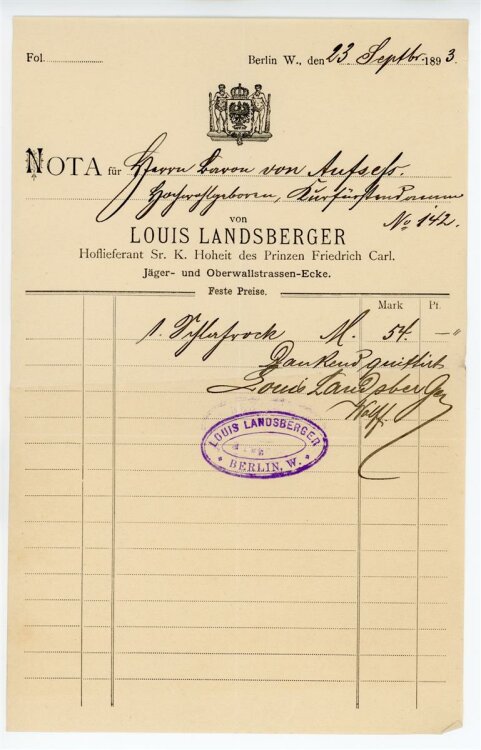 Fol.
Berlin W., den 23. Septbr. 1893.
NOTA für Herrn Baron von Aufsess.
Hochwohlgeboren, Kurfürstendamm
No 142.
von
LOUIS LANDSBERGER
Hoflieferant Sr. K. Hoheit des Prinzen Friedrich Carl.
Jäger- und Oberwallstrassen-Ecke.
Feste Preise.
Mark Pf.
1. Schlafrock M. 54. —"
Dankend quittirt
Louis Landsberger
Wolff
LOUIS LANDSBERGER
BERLIN, W.